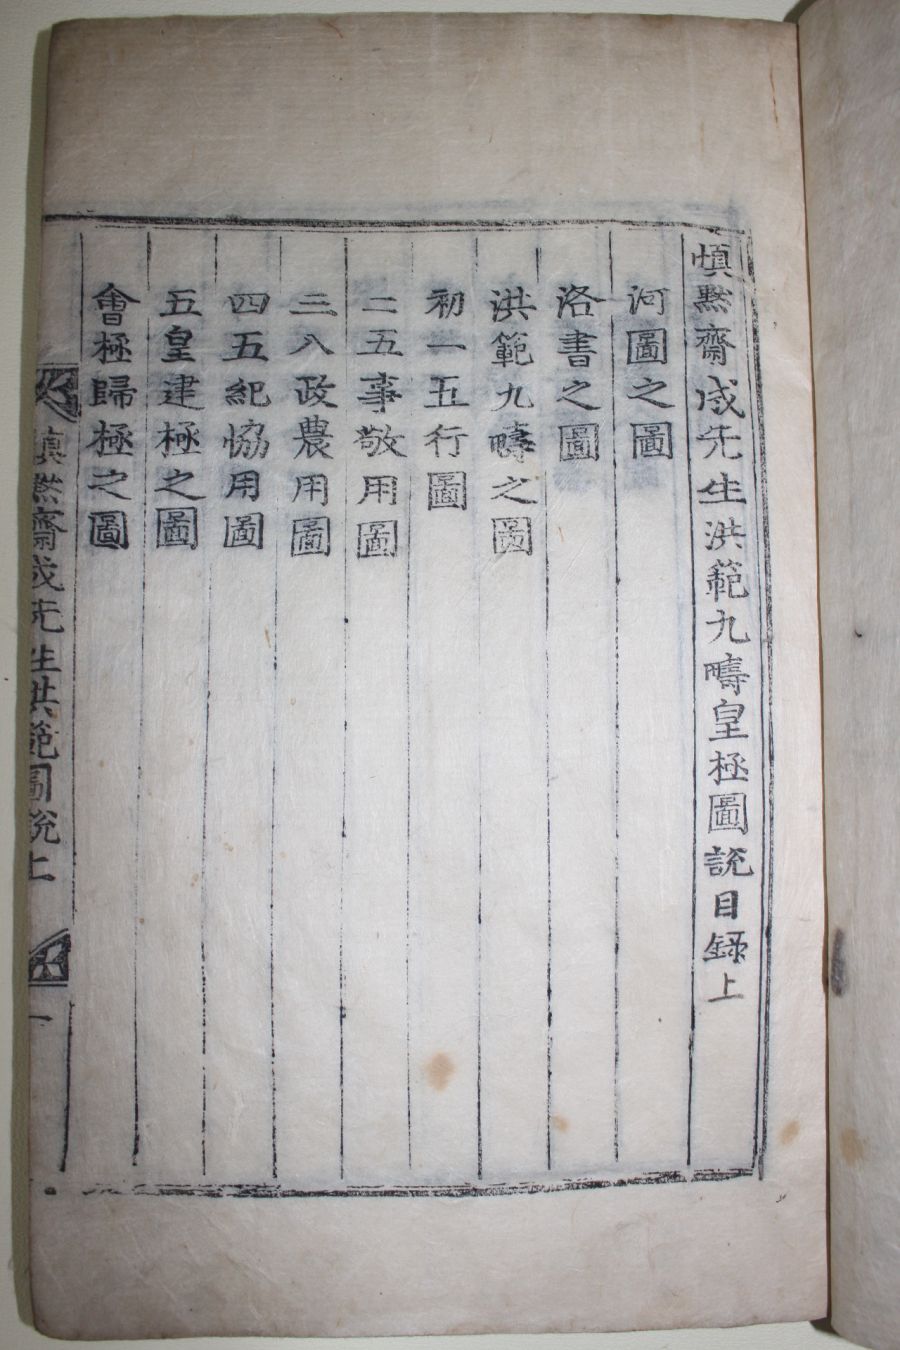 愼默齋成先生洪範九疇皇極圖説目録上
河圖之圖
洛書之圖
洪範九疇之圖
初一五行圖
二五事敬用圖
三八政農用圖
四五紀協用圖
五皇建極之圖
會極歸極之圖
愼默齋成先生洪範圖說上
一